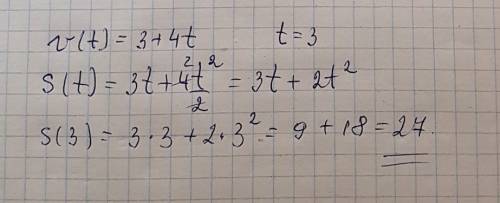 v(t) = 3+4t t=3
S(t) = 3t+4t²/2 = 3t+2t²
S(3) = 3·3+2·3² = 9+18=27.